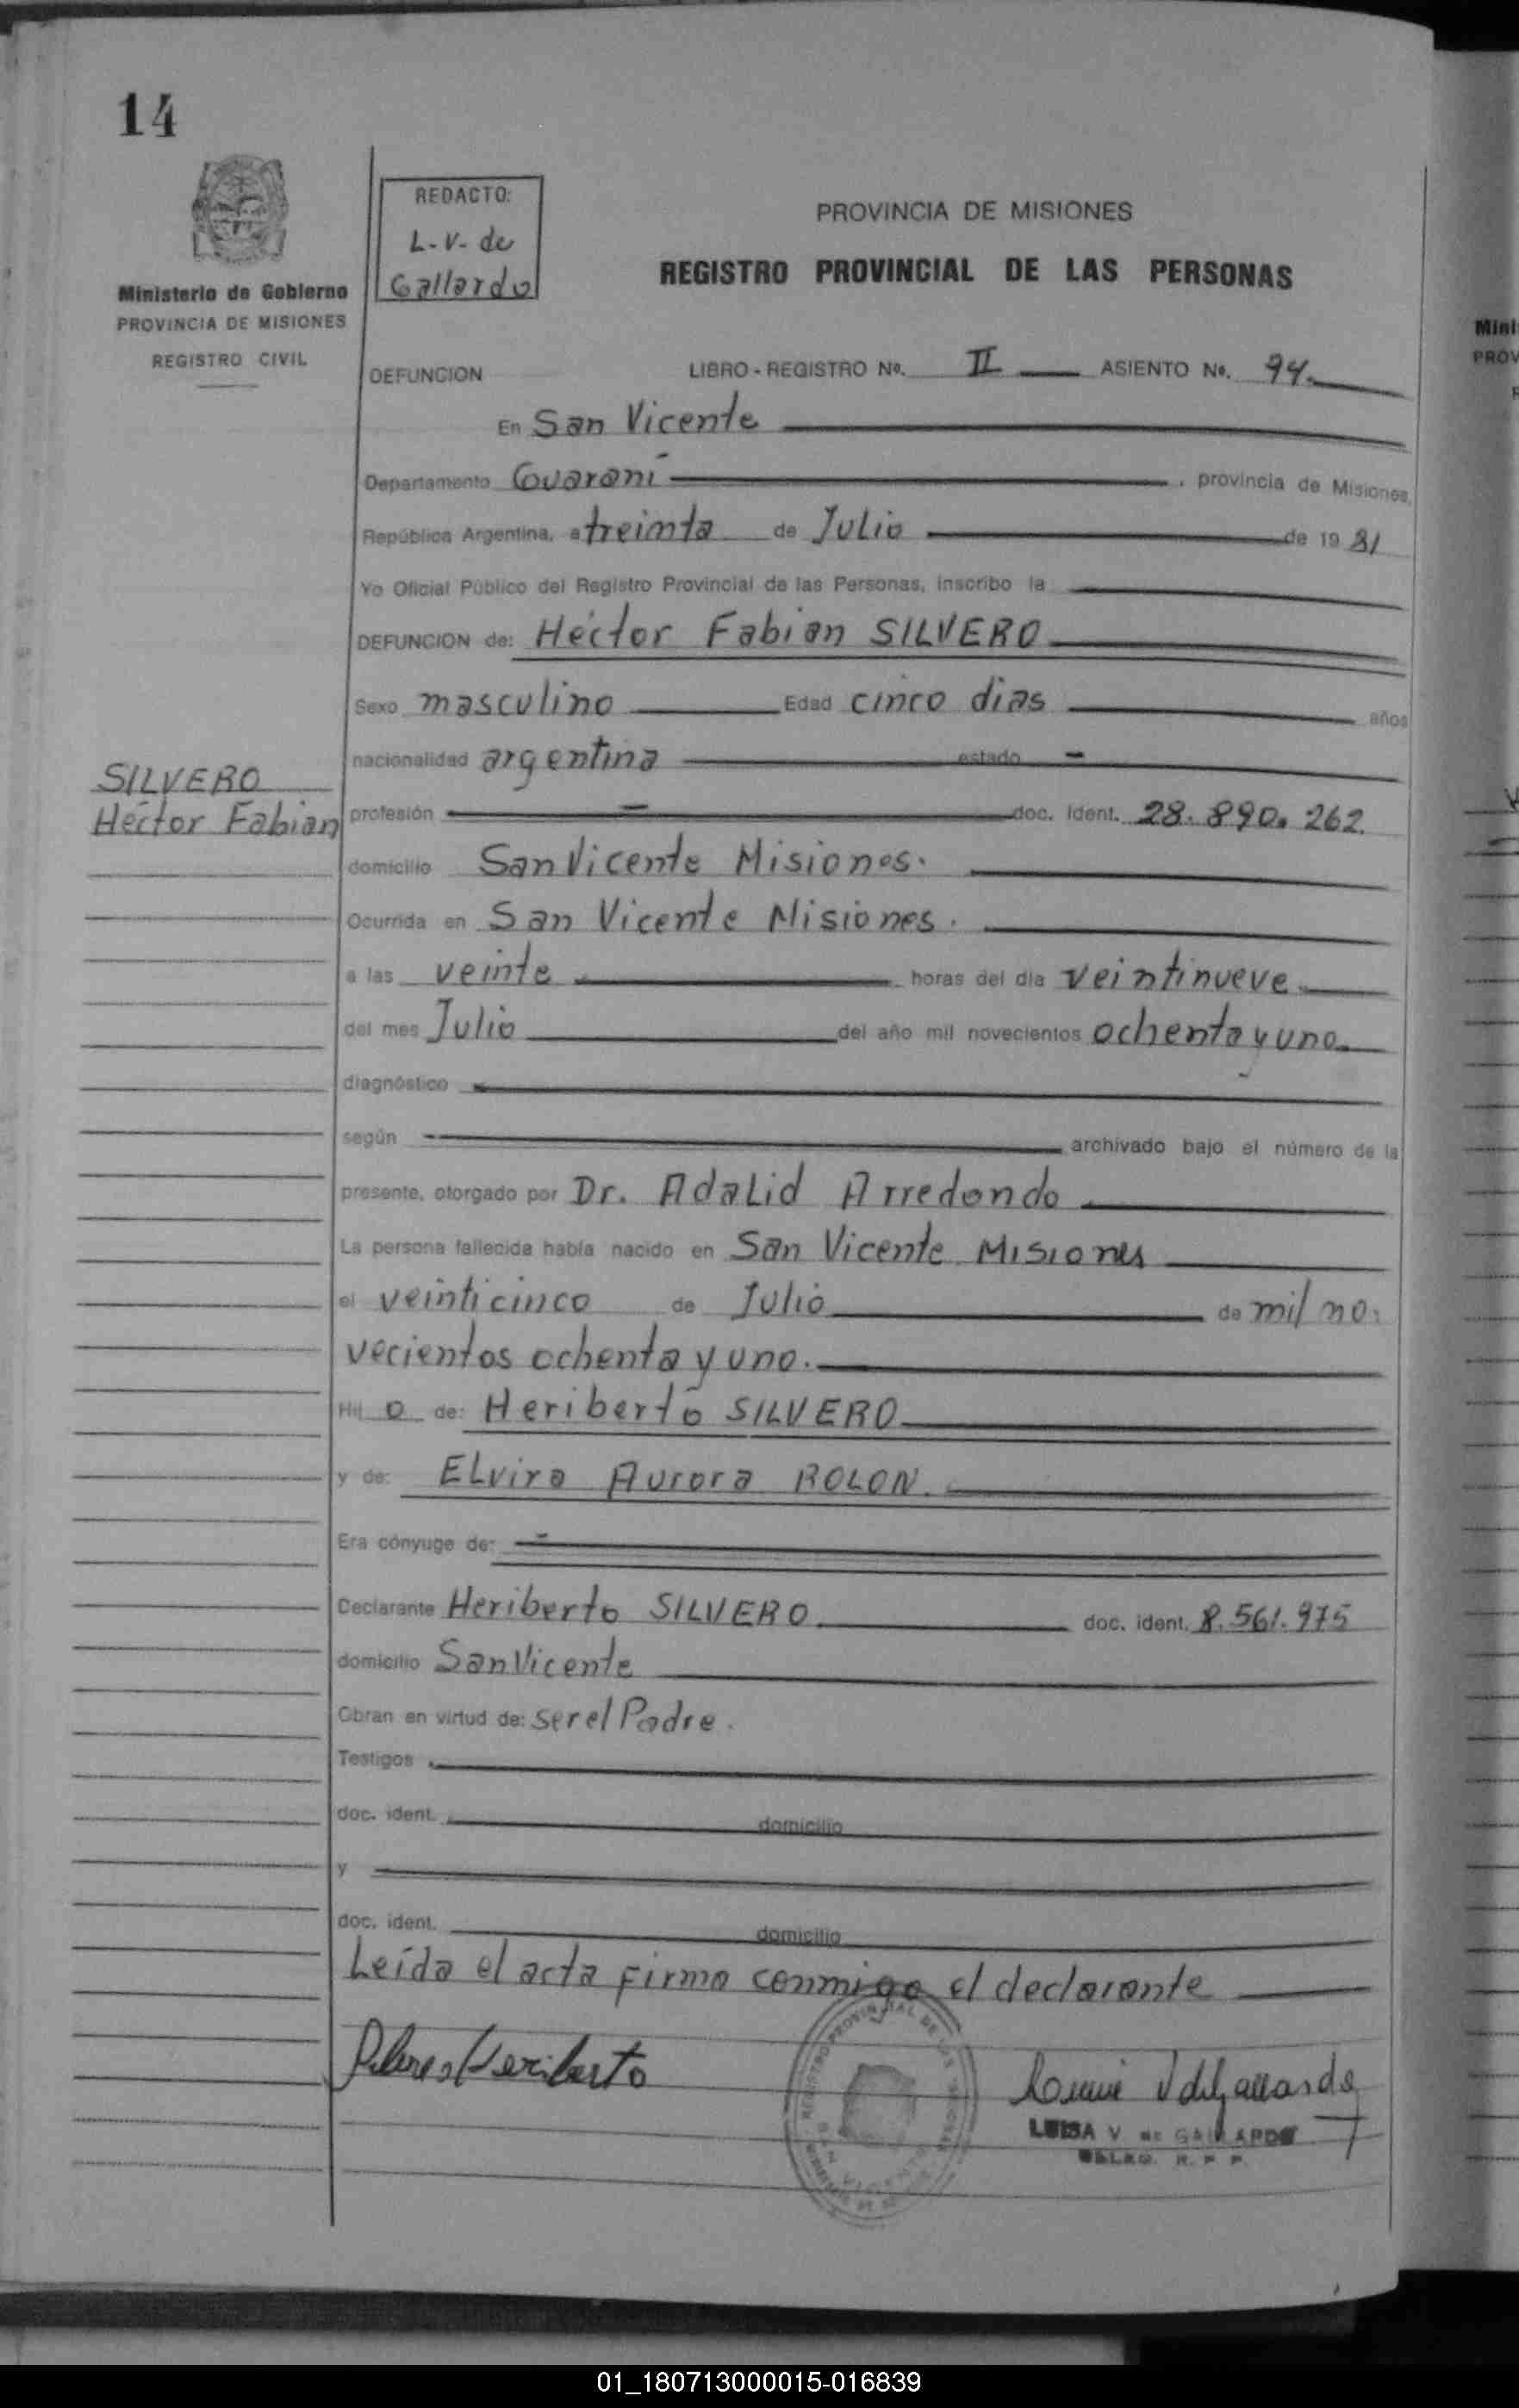 14
REDACTO:
L-V- de
Gallardo
Ministerio de Gobierno
PROVINCIA DE MISIONES
REGISTRO CIVIL
PROVINCIA DE MISIONES
REGISTRO PROVINCIAL DE LAS PERSONAS
DEFUNCION LIBRO - REGISTRO No. II ASIENTO No. 94.
En San Vicente
Departamento Guaraní , provincia de Misiones,
República Argentina, a treinta de Julio de 19 81
Yo Oficial Público del Registro Provincial de las Personas, inscribo la
DEFUNCION de: Héctor Fabian SILVERO
Sexo masculino Edad cinco dias años
nacionalidad argentina estado -
SILVERO
Héctor Fabian
profesión - doc. ident. 28.890.262
domicilio San Vicente Misiones.
Ocurrida en San Vicente Misiones.
a las veinte horas del día veintinueve
del mes Julio del año mil novecientos ochenta y uno
diagnóstico
según archivado bajo el número de la
presente, otorgado por Dr. Adalid Arredondo
La persona fallecida había nacido en San Vicente Misiones
el veinticinco de Julio de mil no-
vecientos ochenta y uno.
Hij o de: Heriberto SILVERO
y de: Elvira Aurora ROLON.
Era cónyuge de: -
Declarante Heriberto SILVERO doc. ident. 8.561.975
domicilio San Vicente
Obran en virtud de: ser el Padre.
Testigos
doc. ident. domicilio
y
doc. ident. domicilio
Leída el acta firma conmigo el declarante
Heriberto
LUISA V de GALLARDO
01_180713000015-016839